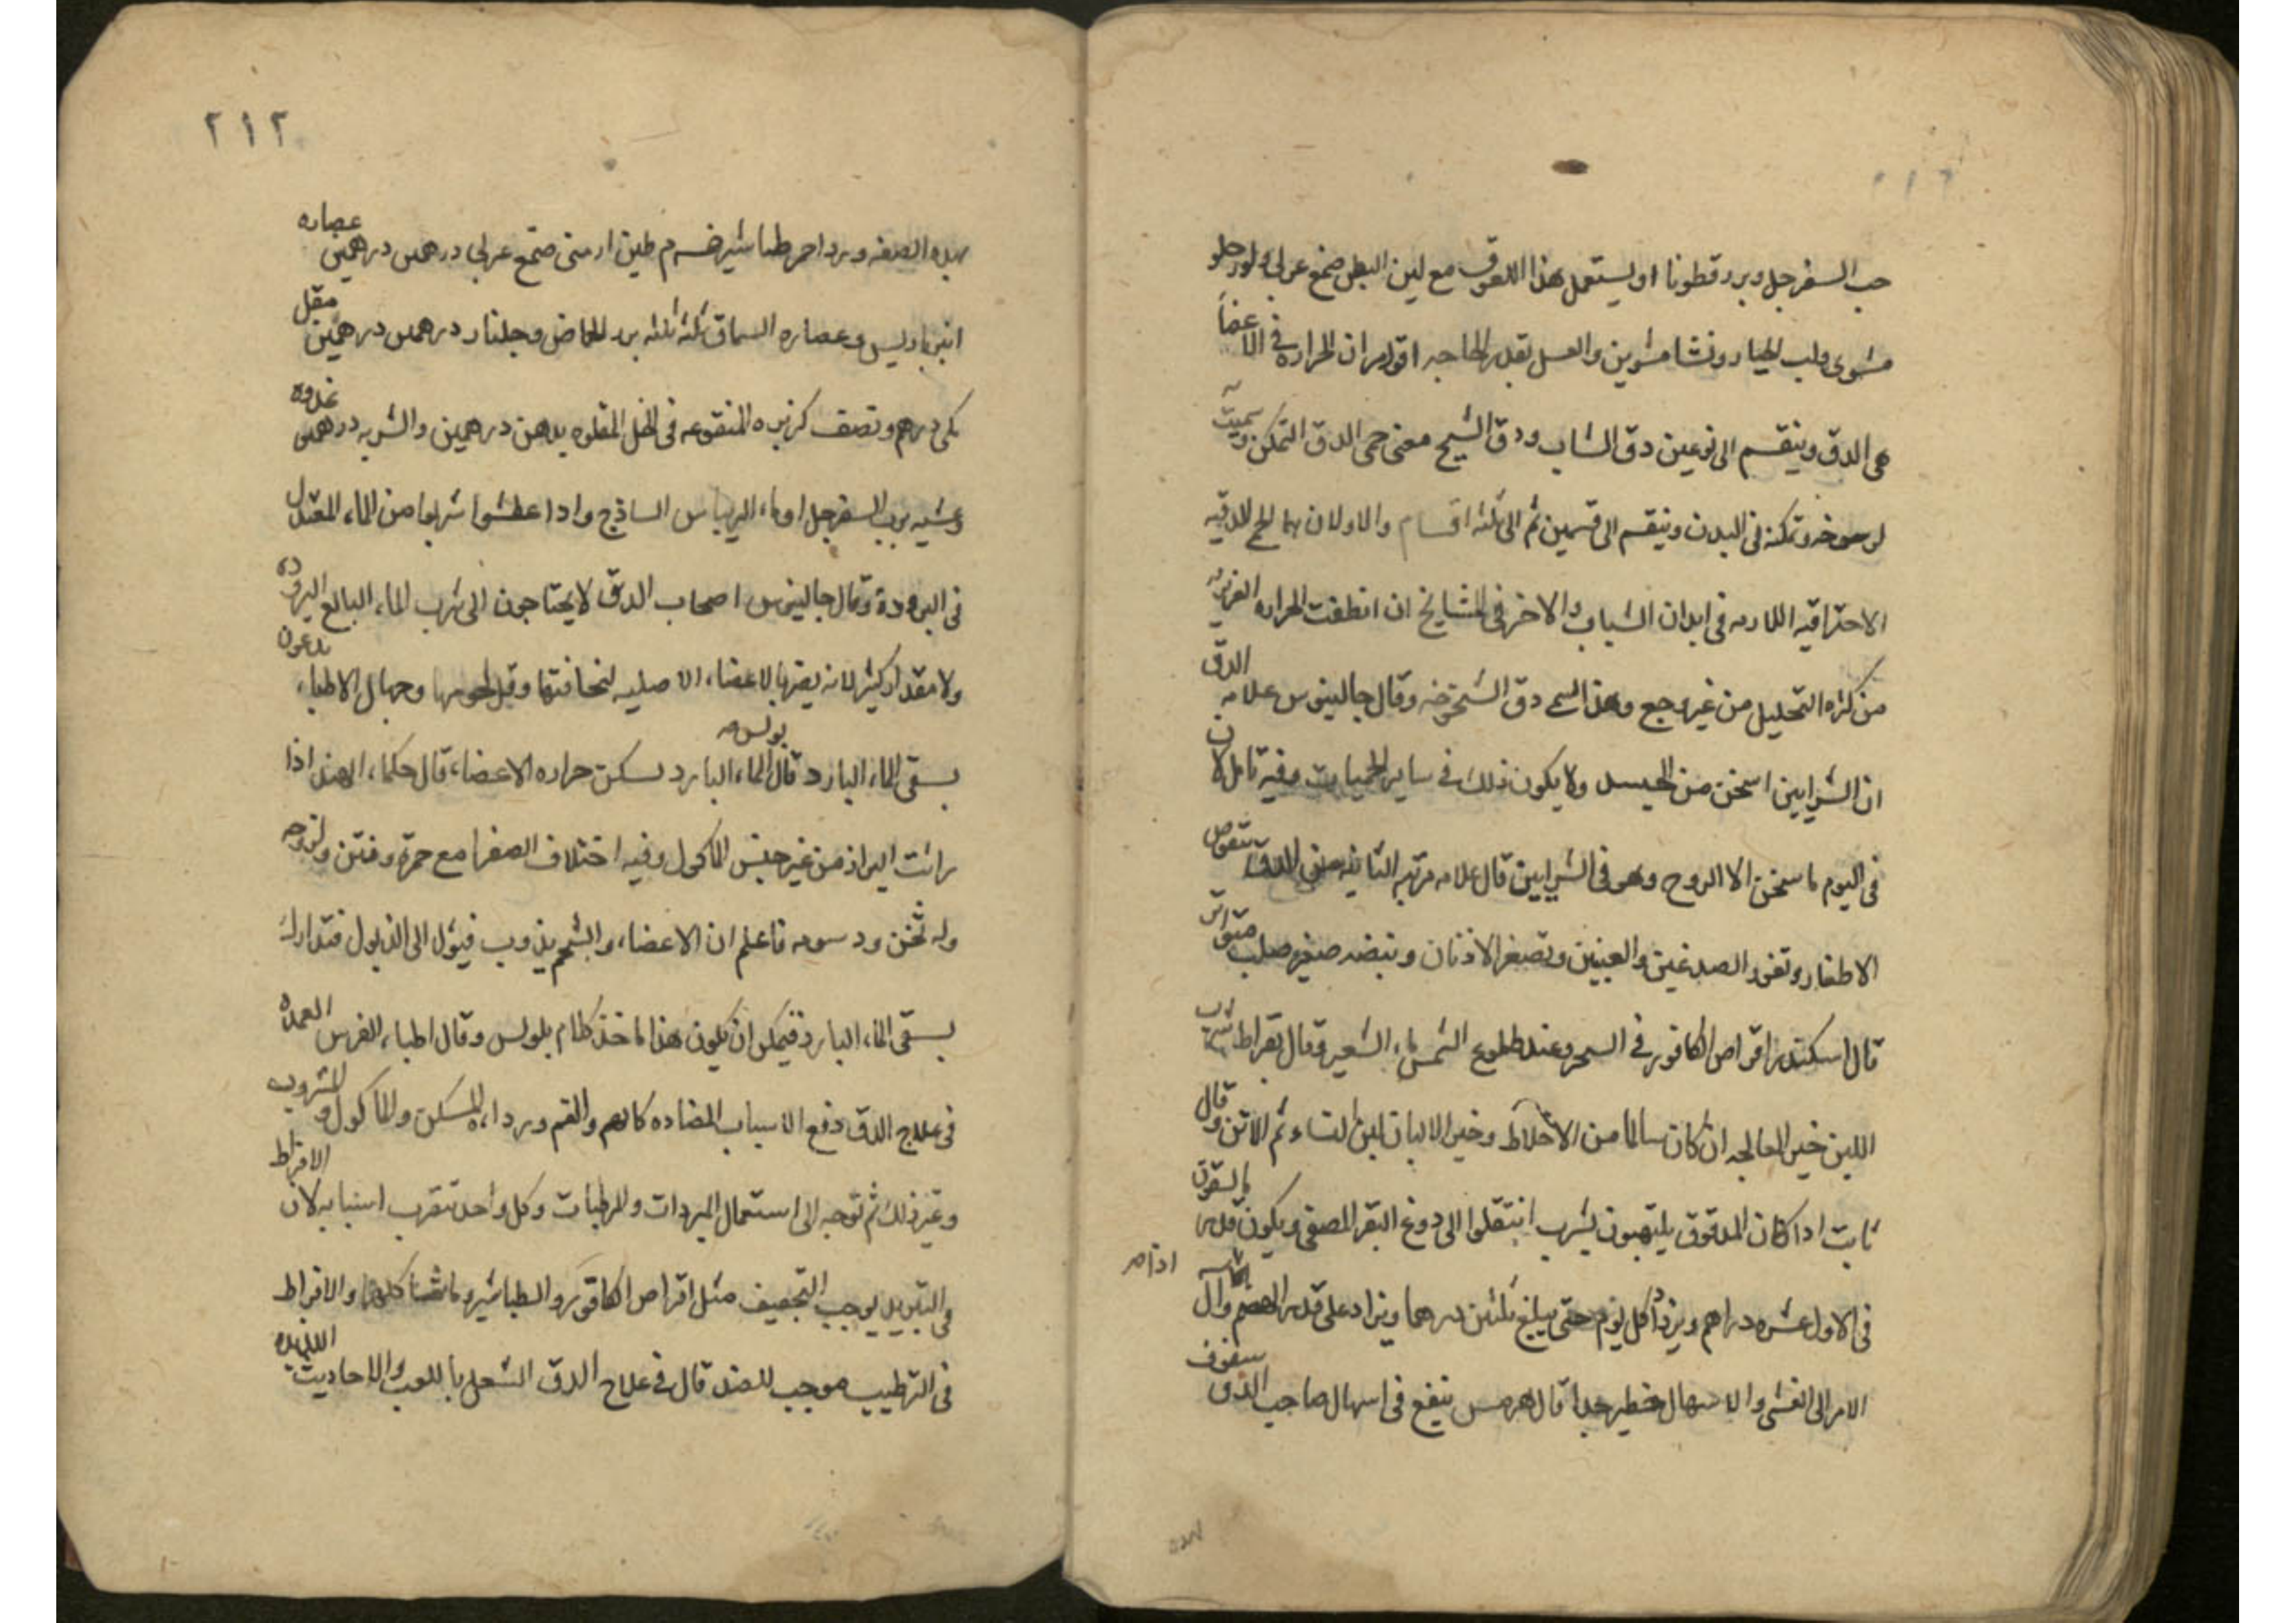 حب السفرجل وبزر قطونا او يستعمل هذا اللعوق مع لين البطن صمغ عربي ولوز حلو
مشوى ولب الخيار ونشا مشوين والعسل بقدر الحاجه اقول ان الحراره في الاعضا
هى الدق وينقسم الى نوعين دق الشاب ودق الشيخ معنى حمى الدق التمكن وسميت
وتمكنه فى البدن وينقسم الى قسمين ثم الى ثلثه اقسام والاولان
الاحتراقيه اللازمه فى ابدان الشباب والاخر فى المشايخ ان انطفت الحراره الغريزيه
من كثره التحليل من غير وجع وهذا يسمى دق الشيخوخه وقال جالينوس علامه الدق
ان الشرايين اسخن من الجسد ولا يكون ذلك فى ساير الحميات وفيه تامل لان
فى اليوم ما سخن الا الروح وهو فى الشرايين قال علامه مرتبه الثانيه من الدق
الاظفار وتغور الصدغين والعينين وتصغر الاذنان ونبضه صغير صلب متواتر
قال اسكندر اقراص الكافور فى السحر وعند طلوع الشمس ماء الشعير وقال بقراط شرب
اللبن خير المعالجه ان كان سالما من الاخلاط وخير الالبان لبن النساء ثم الاتن وقال
ثابت اذا كان المدقوق يلتهبون يشرب انتقلوا الى دوغ البقر المصفى ويكون قدر
فى الاول عشره دراهم ويزداد كل يوم حتى يبلغ ثلثين درهما ويزاد على قدر الهضم
الامر الى الغشى والاسهال خطير جدا قال هرمس ينفع فى اسهال صاحب الدق سفوف
٢١٢
بهذه الصفه ورد احمر طباشير طين ارمنى صمغ عربى درهمين درهمين عصاره
انبرباريس وعصاره السماق ثلثه ثلثه بزر الحماض وجلنار درهمين درهمين مقل
مكى درهم ونصف كزبره المنقوعه فى الخل المقلوه بدهن درهمين والشربه درهمين غدوه
وعشيه برب السفرجل او ماء الريباس الساذج واذا عطشوا شربوا من الماء المعتدل
فى البروده وقال جالينوس اصحاب الدق لا يحتاجون الى شرب الماء البالغ البروده
ولا مقدار كثير لانه يضر بالاعضاء الاصليه لنحافتها وقل لحومها وجهال الاطباء يدعون
بسقى الماء البارد قال بولس الماء البارد يسكن حراره الاعضاء قال حكماء الهند اذا
رايت البراز من غير جنس الماكول وفيه اختلاف الصفرا مع حمره ونتن ولزوجه
وله ثخن ودسومه فاعلم ان الاعضاء والشحم يذوب فيؤل الى الذبول فتدارك
بسقى الماء البارد فيمكن ان يكون هذا ماخذ كلام بلولس وقال اطباء الفرس العمده
فى علاج الدق دفع الاسباب المضاده كالهم والغم وبرداء المسكن والماكول والمشروب
وغير ذلك ثم توجه الى استعمال المبردات والمرطبات وكل واحد تقرب اسبابه لان الافراط
فى التبريد يوجب التجفيف مثل اقراص الكافور والطباشير وما والافراط
فى الترطيب موجب للضد قال فى علاج الدق الشعل باللعب والاحاديث اللذيذه